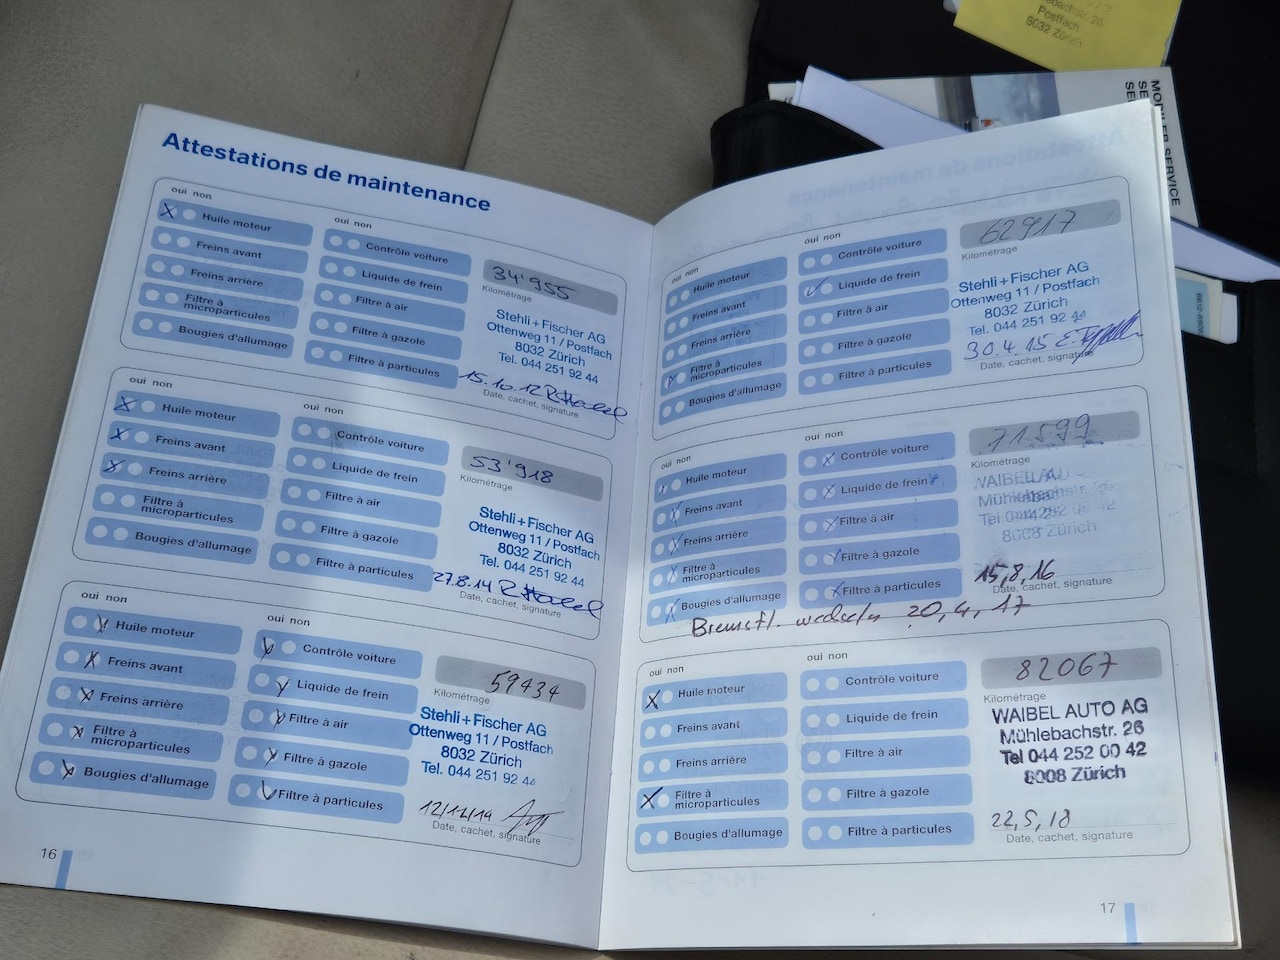 Attestations de maintenance
oui non
Huile moteur
Freins avant
Freins arrière
Filtre à
microparticules
Bougies d'allumage
oui non
Contrôle voiture
Liquide de frein
Filtre à air
Filtre à gazole
Filtre à particules
34'955
Kilométrage
Stehli + Fischer AG
Ottenweg 11 / Postfach
8032 Zürich
Tel. 044 251 92 44
15.10.12
Date, cachet, signature
oui non
Huile moteur
Freins avant
Freins arrière
Filtre à
microparticules
Bougies d'allumage
oui non
Contrôle voiture
Liquide de frein
Filtre à air
Filtre à gazole
Filtre à particules
53'918
Kilométrage
Stehli + Fischer AG
Ottenweg 11 / Postfach
8032 Zürich
Tel. 044 251 92 44
27.8.14
Date, cachet, signature
oui non
Huile moteur
Freins avant
Freins arrière
Filtre à
microparticules
Bougies d'allumage
oui non
Contrôle voiture
Liquide de frein
Filtre à air
Filtre à gazole
Filtre à particules
59434
Kilométrage
Stehli + Fischer AG
Ottenweg 11 / Postfach
8032 Zürich
Tel. 044 251 92 44
Date, cachet, signature
16
oui non
Huile moteur
Freins avant
Freins arrière
Filtre à
microparticules
Bougies d'allumage
oui non
Contrôle voiture
Liquide de frein
Filtre à air
Filtre à gazole
Filtre à particules
62917
Kilométrage
Stehli + Fischer AG
Ottenweg 11 / Postfach
8032 Zürich
Tel. 044 251 92 44
30.4.15
Date, cachet, signature
oui non
Huile moteur
Freins avant
Freins arrière
Filtre à
microparticules
Bougies d'allumage
oui non
Contrôle voiture
Liquide de frein
Filtre à air
Filtre à gazole
Filtre à particules
71599
Kilométrage
WAIBEL AU
8008 Zürich
15,8,16
Date, cachet, signature
Bremsfl. wechseln 20,4,17
oui non
Huile moteur
Freins avant
Freins arrière
Filtre à
microparticules
Bougies d'allumage
oui non
Contrôle voiture
Liquide de frein
Filtre à air
Filtre à gazole
Filtre à particules
82067
Kilométrage
WAIBEL AUTO AG
Mühlebachstr. 26
Tel 044 252 00 42
8008 Zürich
22,5,18
Date, cachet, signature
17
Postfach
8032 Zürich
MOBILER SERVICE